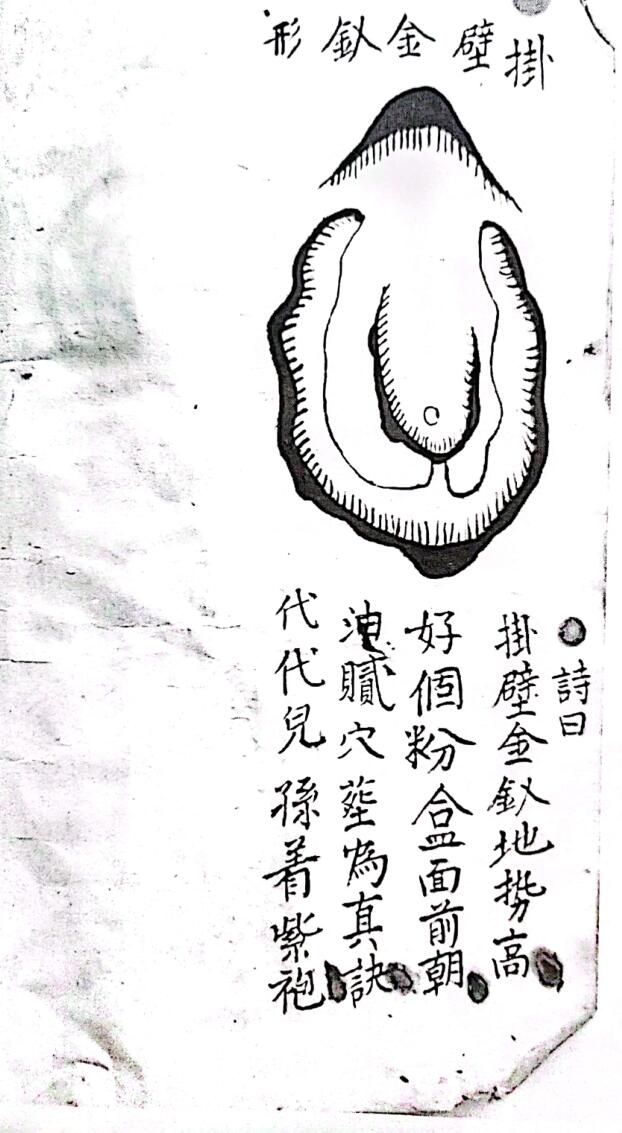 掛壁金釵形
詩曰
掛壁金釵地势高
好個粉盒面前朝
油膩穴塟為真訣
代代兒孫着紫袍